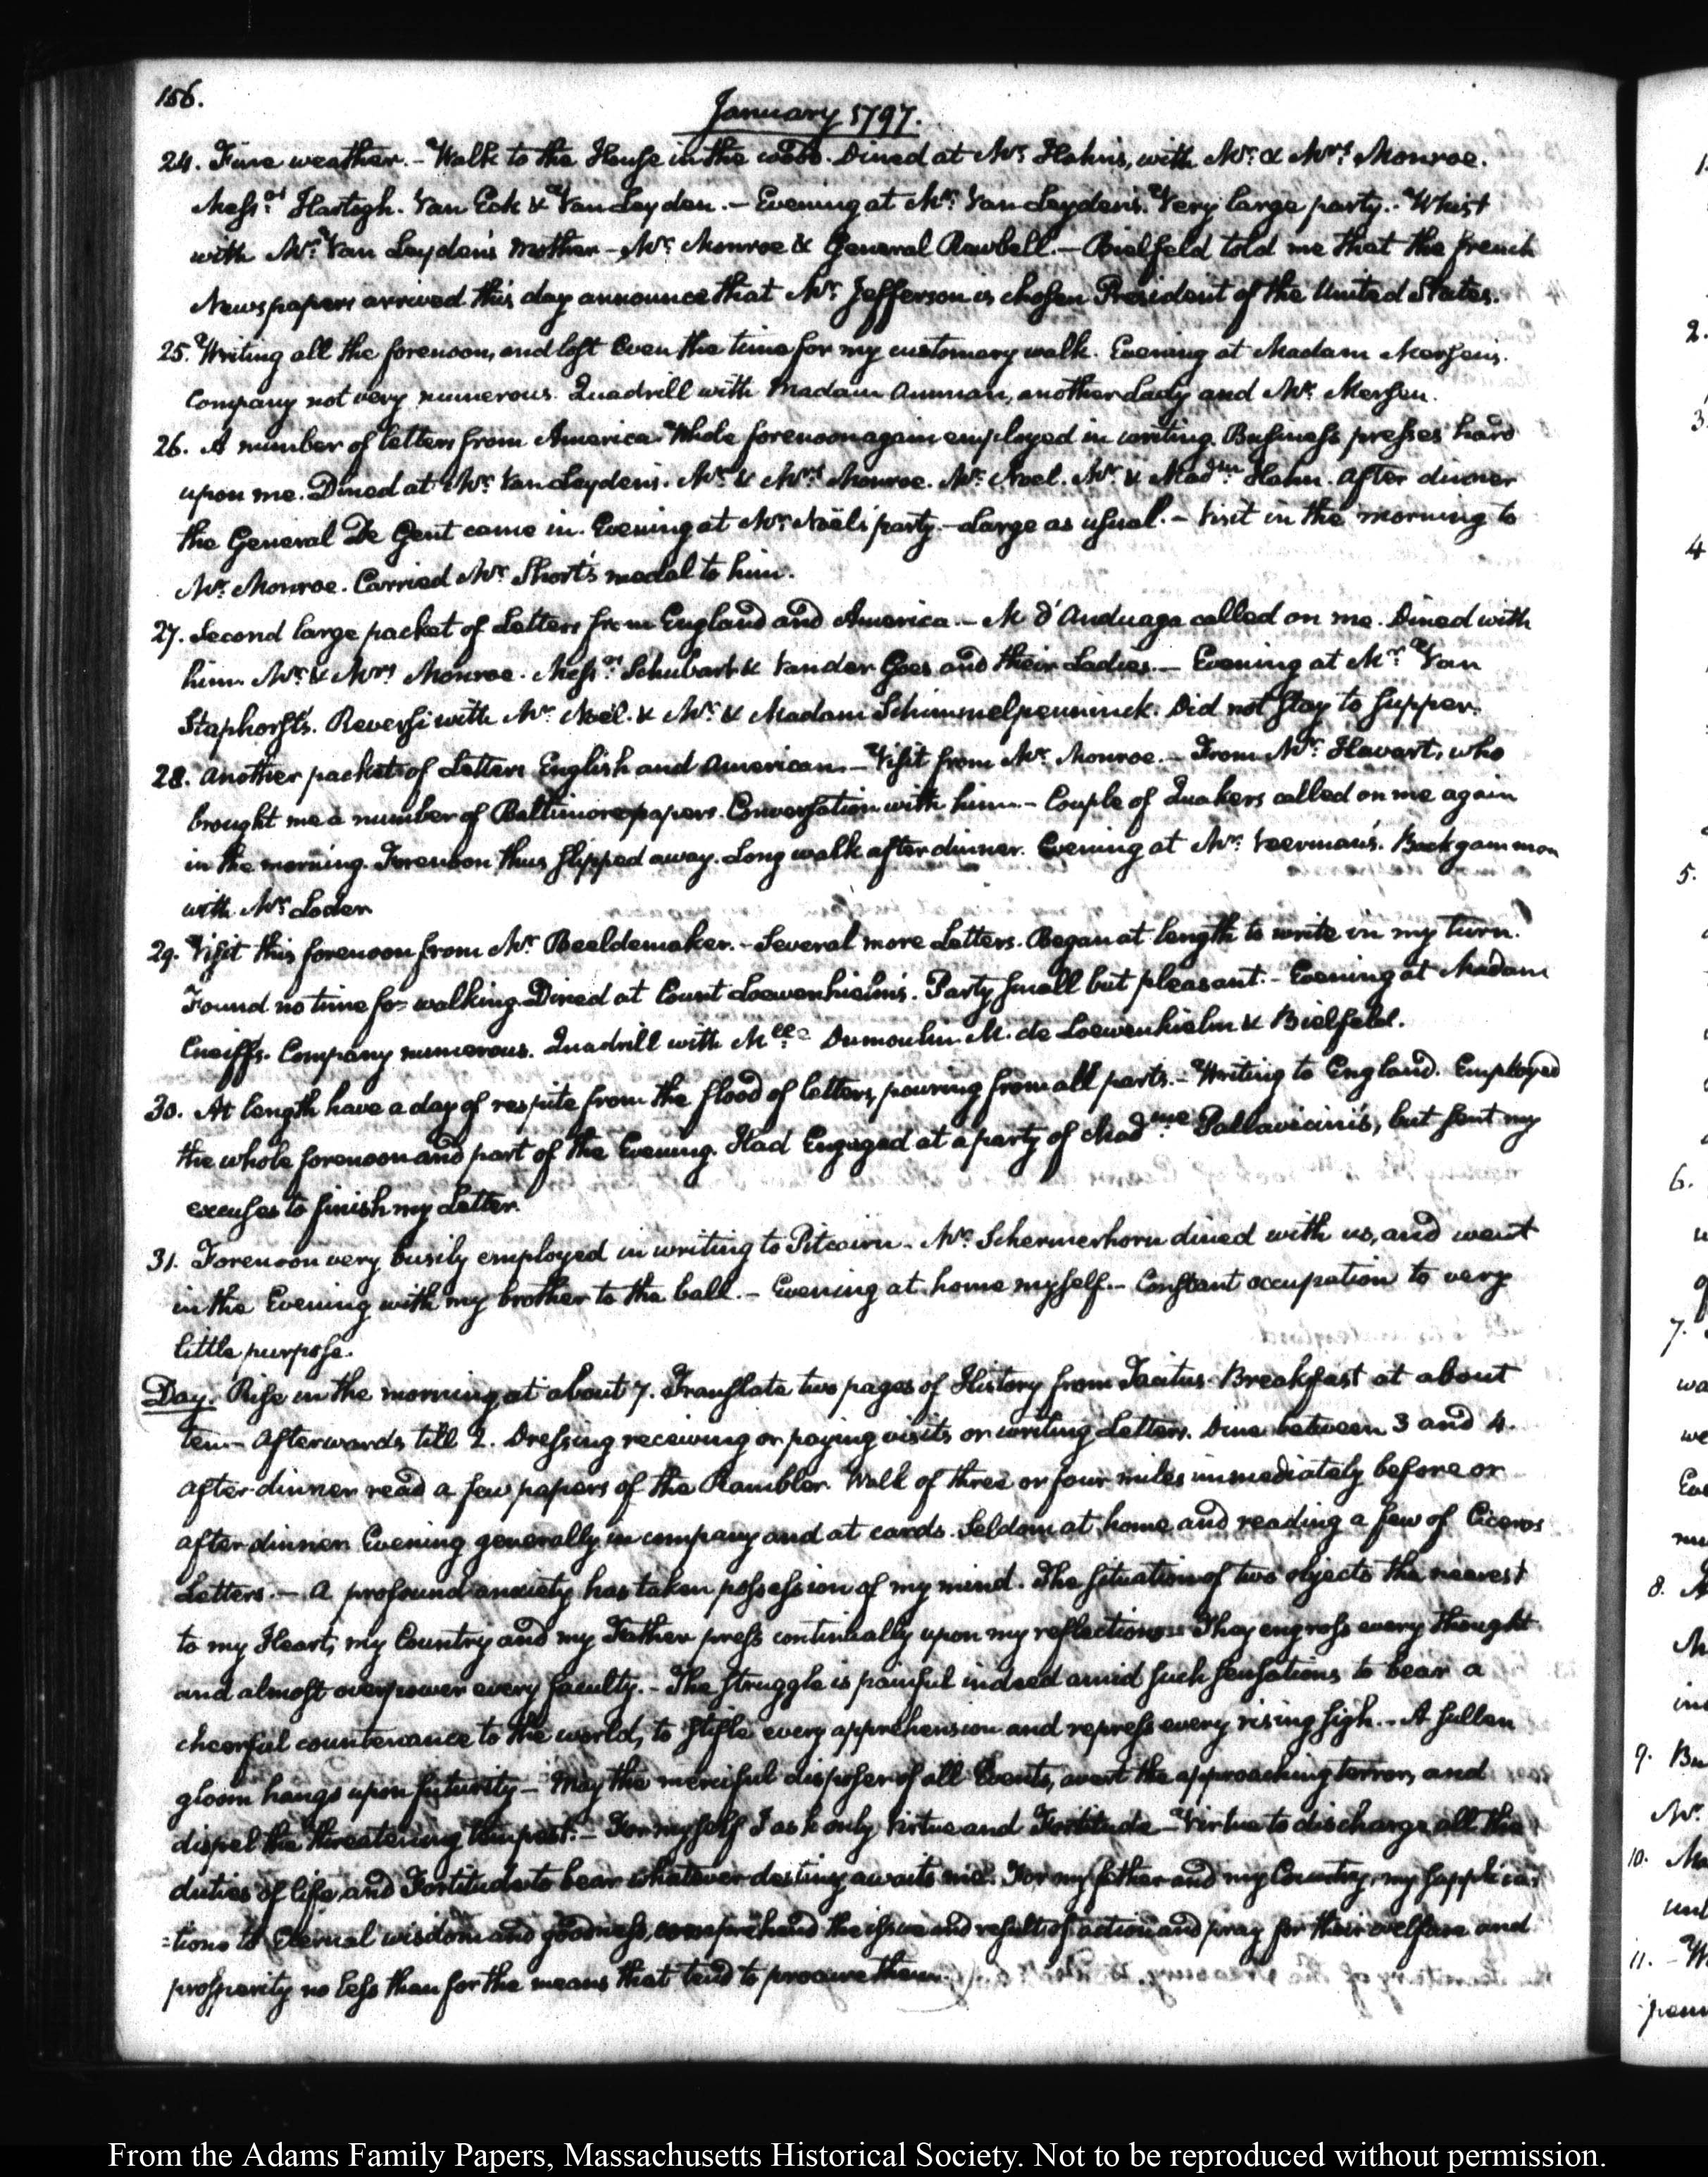 156.
January 1797.
24. Fine weather. - Walk to the House in the wood. Dined at Mr: Hahn's, with Mr: & Mrs: Monroe.
Messrs: Hartogh. Van Eck & Van Leyden. - Evening at Mr: Van Leyden's. Very large party. - Whist
with Mr: Van Leyden's Mother - Mr: Monroe & General Rewbell. - Bielfeld told me that the french
Newspapers arrived this day announce that Mr: Jefferson is chosen President of the United States.
25. Writing all the forenoon, and lost even the time for my customary walk. Evening at Madam Mersen's.
Company not very numerous. Quadrill with Madam Amman, another Lady and Mr: Mersen.
26. A number of letters from America. Whole forenoon again employed in writing. Business presses hard
upon me. Dined at Mr: Van Leyden's. Mr: & Mrs: Monroe. Mr: Noel. Mr: & Madm: Hahn. After dinner
the General De Gent came in. Evening at Mr: Noël's party. - Large as usual. - Visit in the morning to
Mr: Monroe. Carried Mr: Short's medal to him.
27. Second large packet of Letters from England and America. - M. d'Anduaga called on me. Dined with
him. Mr: & Mrs: Monroe. Messrs: Schubart & Vander Goes and their Ladies. - Evening at Mr: Van
Staphorst's. Reversi with Mr: Noël. & Mr: & Madam Schimmelpenninck. Did not stay to supper.
28. Another packet of Letters English and American. - Visit from Mr: Monroe. - From Mr: Havart, who
brought me a number of Baltimore papers. Conversation with him. - Couple of Quakers called on me again
in the morning. Forenoon thus slipped away. Long walk after dinner. Evening at Mr: Veerman's. Backgammon
with Mr: Loder
29. Visit this forenoon from Mr: Beeldemaker. - Several more Letters. Began at length to write in my turn.
Found no time for walking. Dined at Count Loewenhielm's. Party small but pleasant. - Evening at Madam
Cneiffs. Company numerous. Quadrill with Mlle: Dumoulin M. de Loewenhielm & Bielfeld.
30. At length have a day of respite from the flood of letters, pouring from all parts. - Writing to England. Employed
the whole forenoon and part of the Evening. Had Engaged at a party of Madme: Pallavicini's, but sent my
excuses to finish my Letter.
31. Forenoon very busily employed in writing to Pitcairn. Mr: Schermerhorn dined with us, and went
in the Evening with my brother to the ball. - Evening at home myself. - Constant occupation to very
little purpose.
Day. Rise in the morning at about 7. Translate two pages of History from Tacitus. Breakfast at about
ten - Afterwards till 2. Dressing receiving or paying visits or writing Letters. Dine between 3 and 4.
after dinner read a few papers of the Rambler. Walk of three or four miles immediately before or
after dinner. Evening generally in company and at cards. Seldom at home and reading a few of Ciceros
Letters. - A profound anxiety has taken possession of my mind. The situation of two objects the nearest
to my Heart, my Country and my Father press continually upon my reflections. They engross every thought
and almost overpower every faculty. - The struggle is painful indeed amid such sensations to bear a
cheerful countenance to the world, to stifle every apprehension and repress every rising sigh. - A sullen
gloom hangs upon futurity - May the merciful disposer of all Events, avert the approaching terror, and
dispel the threatening tempest. - For myself I ask only Virtue and Fortitude - Virtue to discharge all the
duties of life, and Fortitude to bear whatever destiny awaits me. For my father and my Country, my supplica=
=tions to Eternal wisdom and goodness, comprehend the issue and results of action and pray for their welfare and
prosperity no less than for the means that tend to procure them.
From the Adams Family Papers, Massachusetts Historical Society. Not to be reproduced without permission.